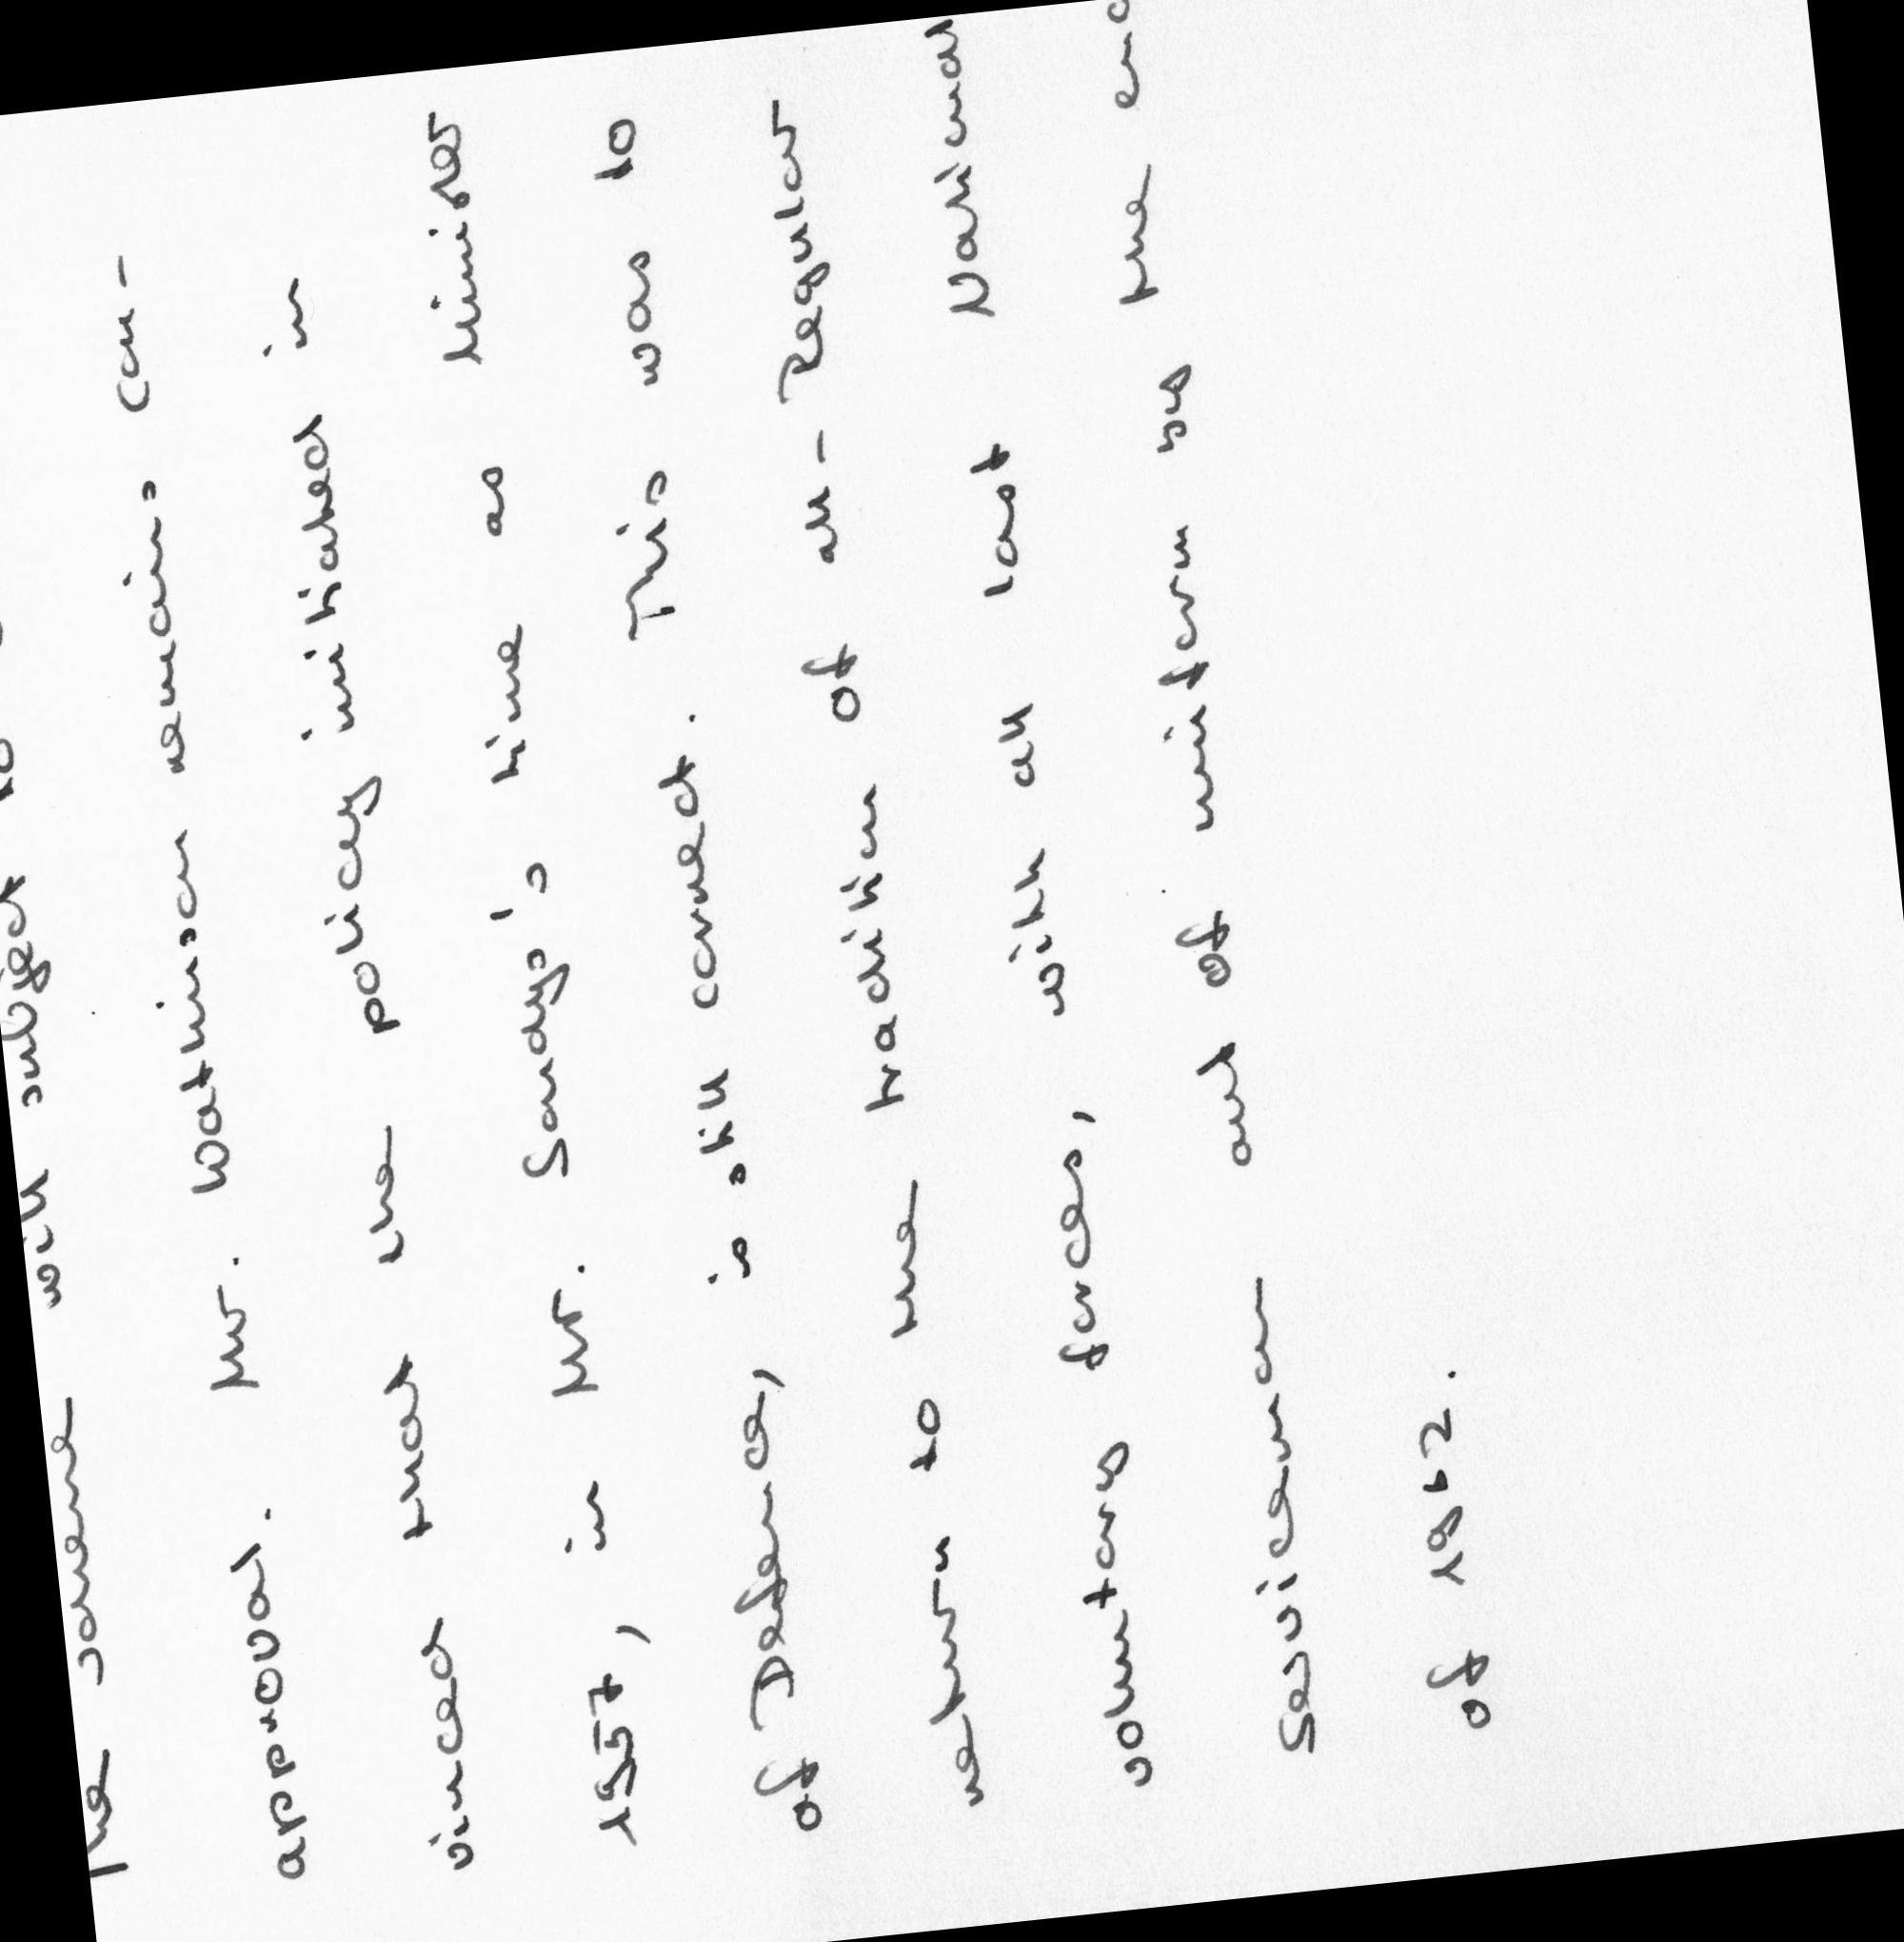 The scheme will subject to
approval. Mr. Watkinson remains con-
vinced that the policy initiated in
1957, in Mr. Sandys's time as Minister
of Defence, is still correct. This was to
return to the tradition of all-Regular
voluntary forces, with all last National
Servicemen out of uniform by the end
of 1962.